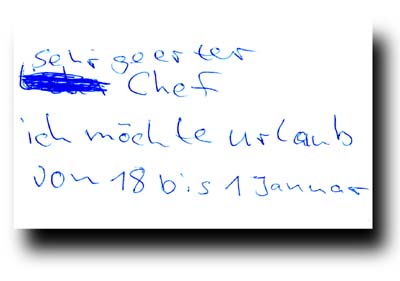 sehr geerter
Chef
ich möchte urlaub
von 18 bis 1 Januar